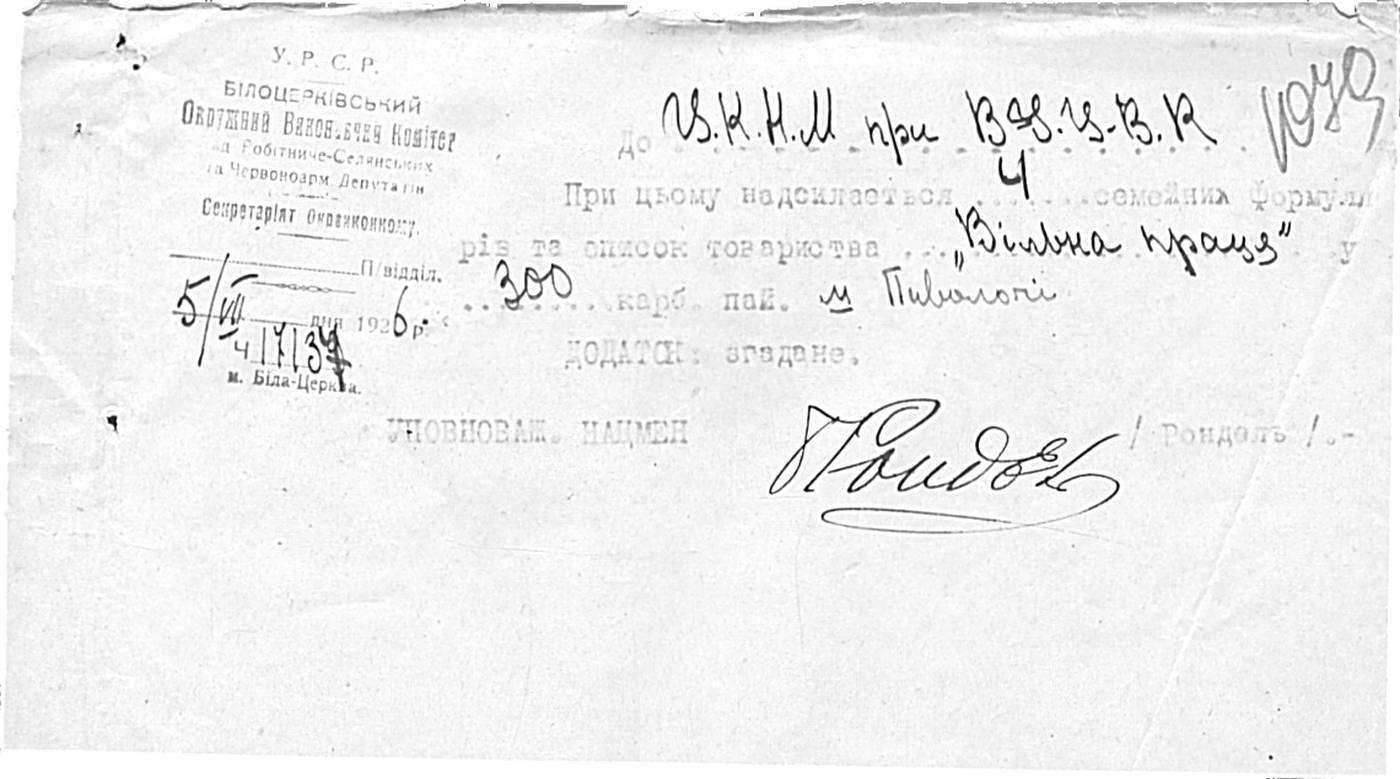 У. Р. С. Р.
БІЛОЦЕРКІВСЬКИЙ
Окружний Виконавчий Комітет
Робітниче-Селянських
та Червоноарм. Депутатів
Секретаріят Окрвиконкому.
П/відділ.
5/VII дня 1926 р.
ч
м. Біла-Церква.
1079
До Ц.К.Н.М при В.У.Ц.В.К
При цьому надсилається 4 семейних формуля
рів та список товариства „Вільна праця" у
300 карб. пай. м
ДОДАТОК: згадане.
УПОВНОВАЖ. НАЦМЕН / Рондель /.-